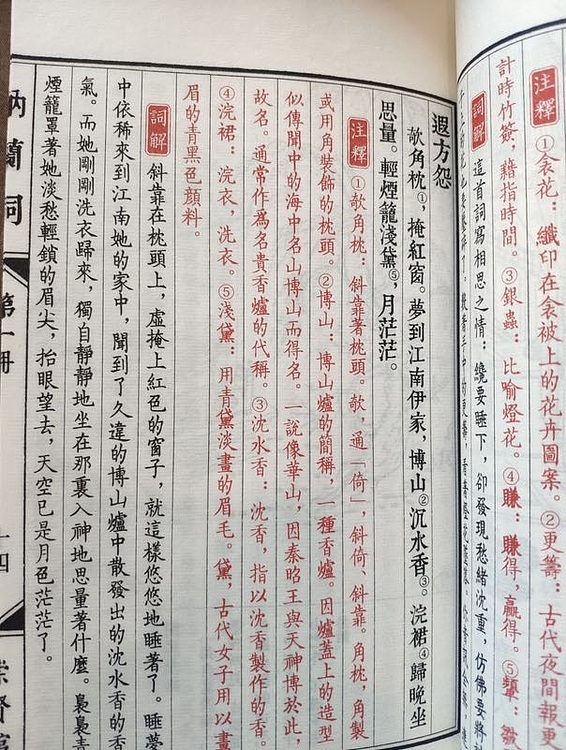 注釋 ①衾花：纖印在衾被上的花卉圖案。②更籌：古代夜間報更
計時竹簽，藉指時間。③銀蟲：比喻燈花。④賺：賺得，贏得。⑤顰：
詞解 這首詞寫相思之情：纔要睡下，卻發現愁緒沈重，仿佛要將
遐方怨
欹角枕①，掩紅窗。夢到江南伊家，博山②沉水香③。浣裙④歸晚坐
思量。輕煙籠淺黛⑤，月茫茫。
注釋 ①欹角枕：斜靠著枕頭。欹，通「倚」，斜倚、斜靠。角枕，角製
或用角裝飾的枕頭。②博山：博山爐的簡稱，一種香爐。因爐蓋上的造型
似傳聞中的海中名山博山而得名。一說像華山，因秦昭王與天神博於此，
故名。通常作爲名貴香爐的代稱。③沈水香：沈香，指以沈香製作的香。
④浣裙：浣衣，洗衣。⑤淺黛：用青黛淡畫的眉毛。黛，古代女子用以畫
眉的青黑色顏料。
詞解 斜靠在枕頭上，虛掩上紅色的窗子，就這樣悠悠地睡著了。睡夢
中依稀來到江南她的家中，聞到了久違的博山爐中散發出的沈水香的香
氣。而她剛剛洗衣歸來，獨自靜靜地坐在那裏入神地思量著什麼。裊裊青
煙籠罩著她淡愁輕鎖的眉尖，抬眼望去，天空已是月色茫茫了。
納蘭詞
第一冊
十四
崇賢館